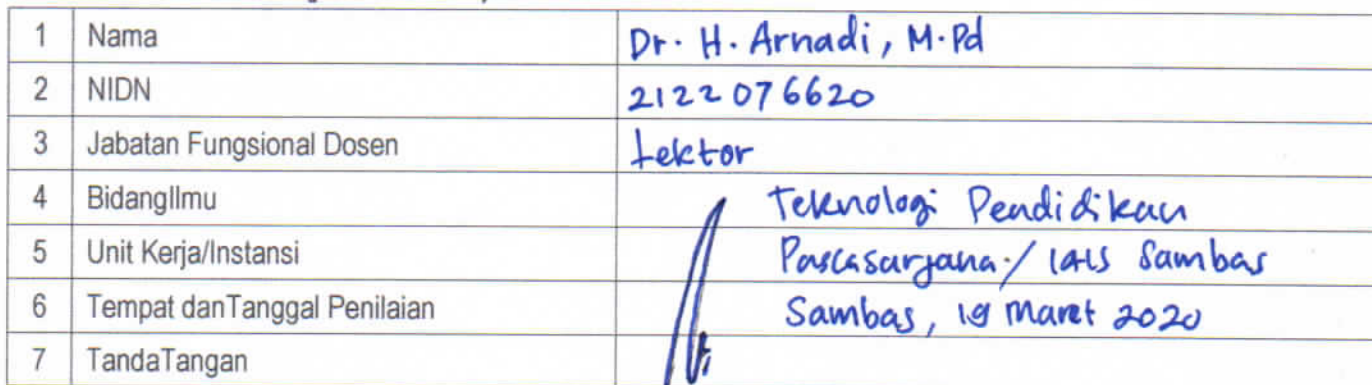 1 Nama Dr. H. Arnadi, M.Pd
2 NIDN 2122076620
3 Jabatan Fungsional Dosen Lektor
4 BidangIlmu Teknologi Pendidikan
5 Unit Kerja/Instansi Pascasarjana / IAIS Sambas
6 Tempat danTanggal Penilaian Sambas, 19 Maret 2020
7 TandaTangan